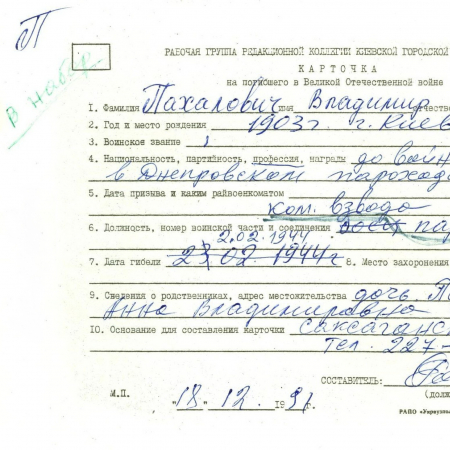 П
В набор
РАБОЧАЯ ГРУППА РЕДАКЦИОННОЙ КОЛЛЕГИИ КИЕВСКОЙ ГОРОДСКОЙ
КАРТОЧКА
на погибшего в Великой Отечественной войне
1. Фамилия Пахалович имя Владимир отчеств
2. Год и место рождения 1903 г. г. Киев
3. Воинское звание
4. Национальность, партийность, профессия, награды до вой
в Днепровском пароход
5. Дата призыва и каким райвоенкоматом
ком. взвода
6. Должность, номер воинской части и соединения
2.02.1944
7. Дата гибели 23 02 1944 г 8. Место захоронения
9. Сведения о родственниках, адрес местожительства дочь
Анна Владимировна
10. Основание для составления карточки саксаганс
тел. 227-
СОСТАВИТЕЛЬ:
М.П. "18" 12. 1991 (дол
РАПО «Укрвузпол